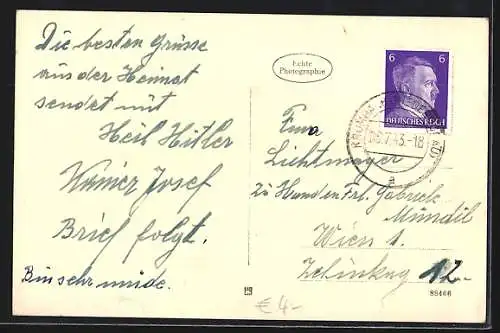 Die besten Grüsse
aus der Heimat
sendet mit
Heil Hitler
Josef
Brief folgt.
Bin sehr müde.
Echte
Photographie
6 6
DEUTSCHES REICH
.7.43.-18
a
Firma
Lichtmayer
Zu Handen Frl. Gabriele
Mündil
Wien 1.
12.
88466
€ 4-